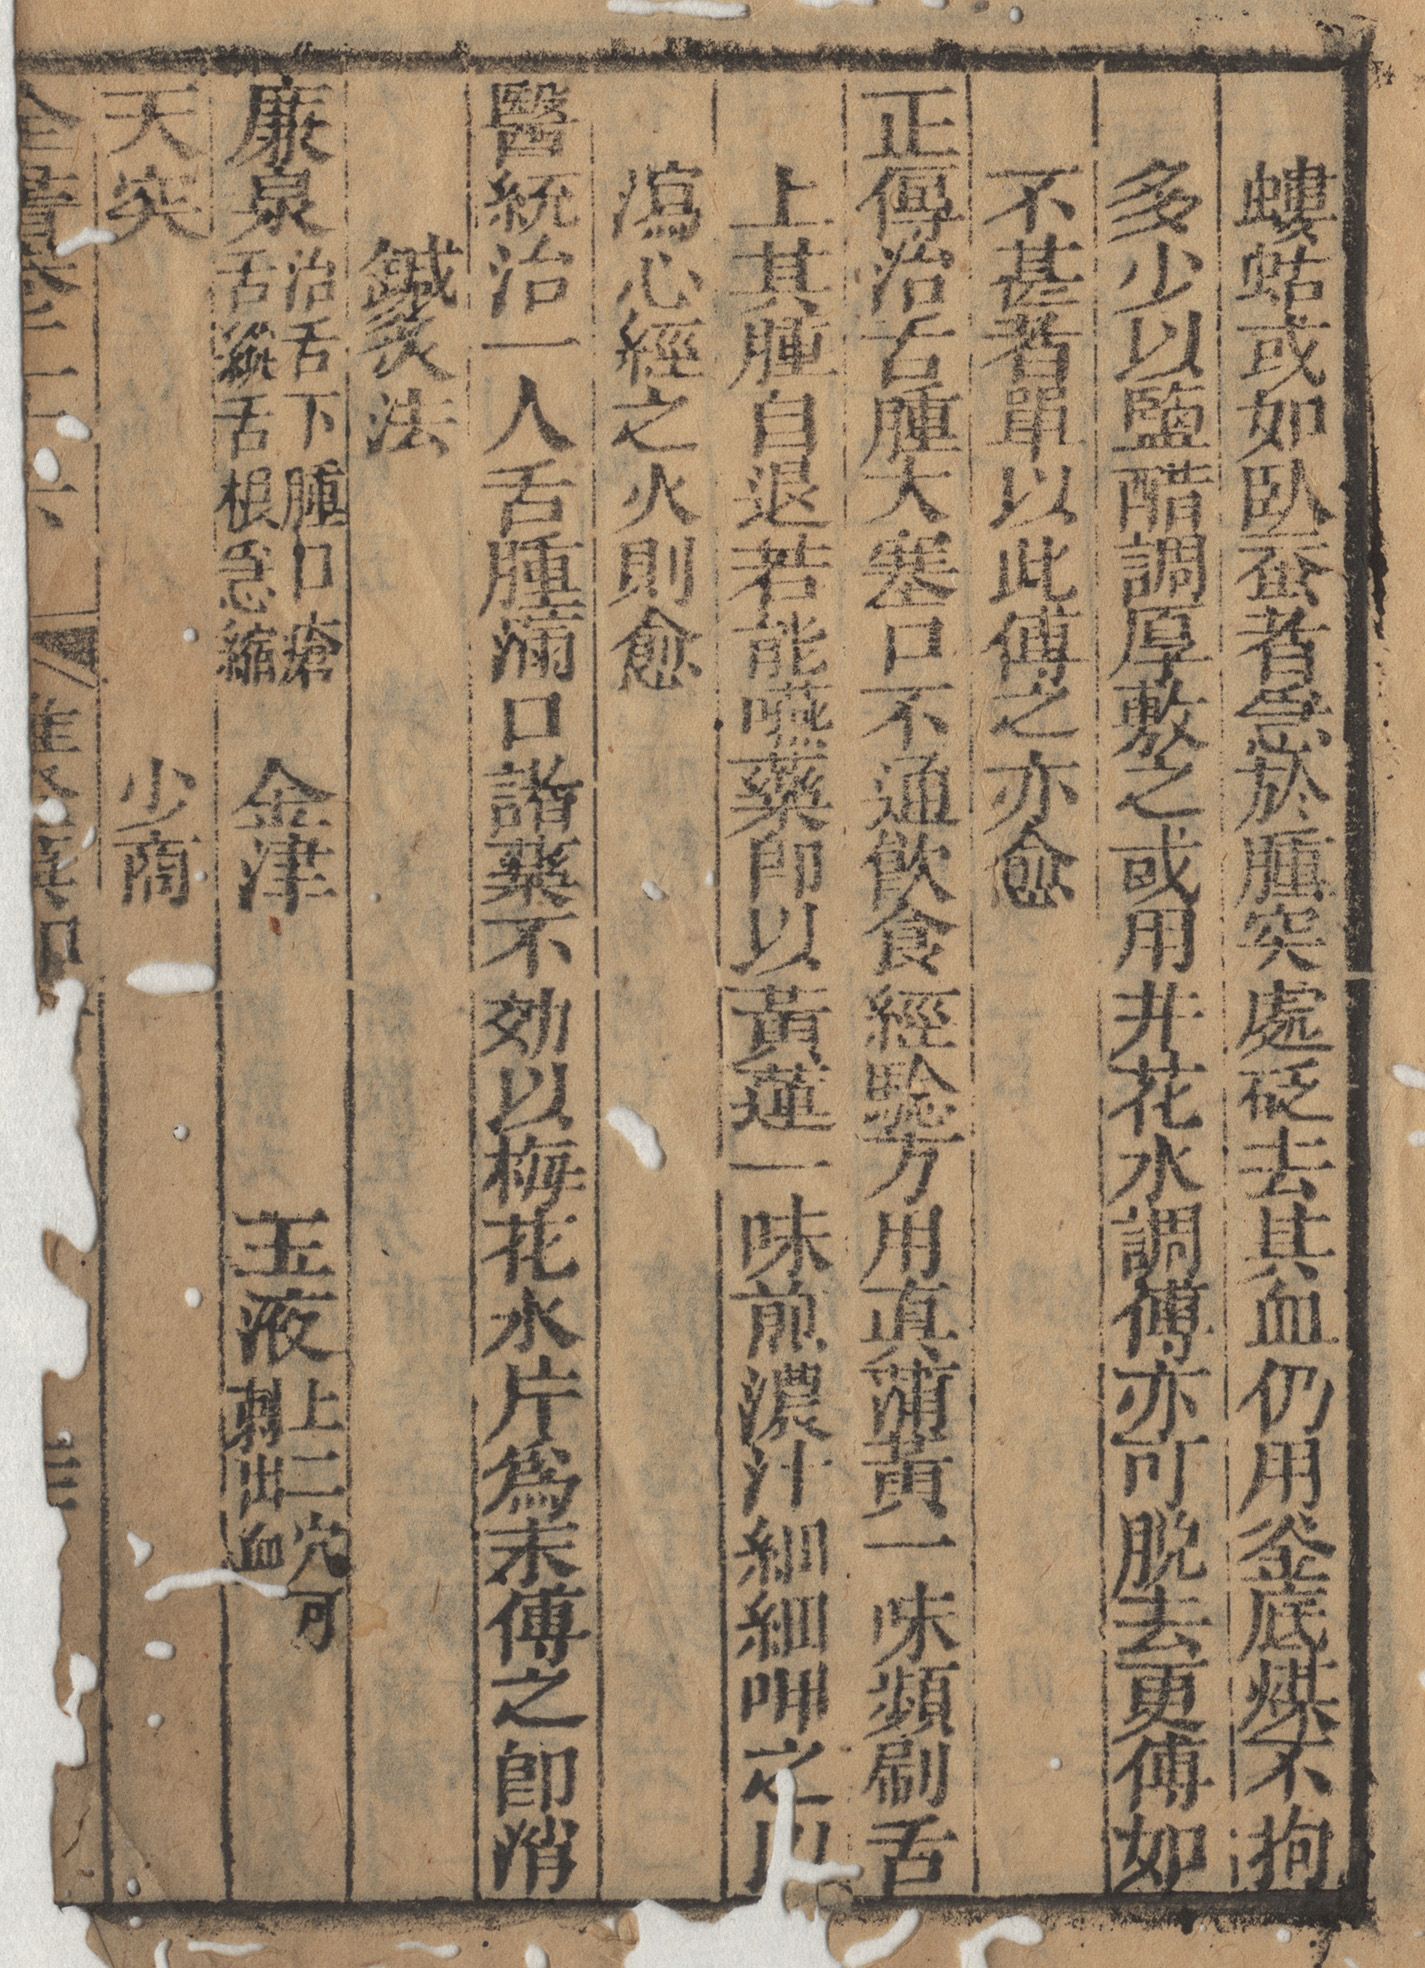 螻蛄或如臥蚕者急於腫突處砭去其血仍用釜底煤不拘
多少以鹽醋調厚敷之或用井花水調傅亦可脫去更傅如
不甚者單以此傅之亦愈
正傳治舌腫大塞口不通飲食經驗方用眞蒲黃一味頻刷舌
上其腫自退若能嚥藥即以黃連一味煎濃汁細細呷之以
瀉心經之火則愈
醫統治一人舌腫滿口諸藥不効以梅花氷片爲末傅之卽消
鍼灸法
廉泉 治舌下腫口瘡舌縱舌根急縮 金津 玉液 上二穴可刺出血
天突 少商